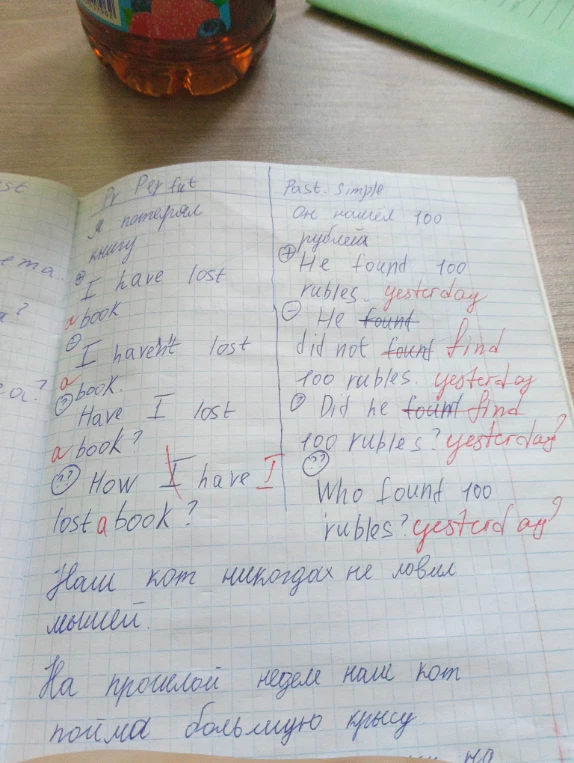 Pr Perfut
Я потерял
книгу
+ I have lost
a book
- I haven't lost
a book.
? Have I lost
a book?
?? How I have I
lost a book?
Past. Simple
Он нашел 100
рублей
+ He found 100
rubles. yesterday
- He found
did not found find
100 rubles. yesterday
? Did he found find
100 rubles? yesterday?
??
Who found 100
rubles? yesterday?
Наш кот никогдах не ловил
мышей.
На прошлой неделе наш кот
пойма большую крысу